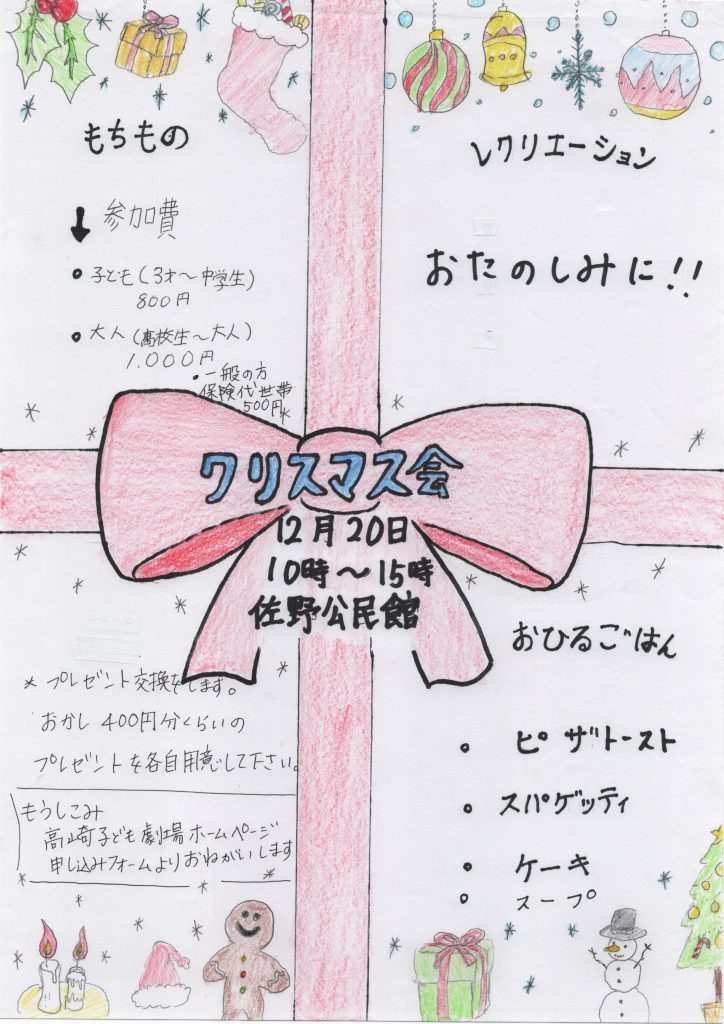 もちもの
↓ 参加費
• 子ども(3才〜中学生)
800円
• 大人(高校生〜大人)
1,000円
• 一般の方
保険代世帯
500円
レクリエーション
おたのしみに!!
クリスマス会
12月20日
10時〜15時
佐野公民館
* プレゼント交換をします。
おかし400円分くらいの
プレゼントを各自用意して下さい。
もうしこみ
高崎子ども劇場ホームページ
申し込みフォームよりおねがいします
おひるごはん
• ピザトースト
• スパゲッティ
• ケーキ
• スープ